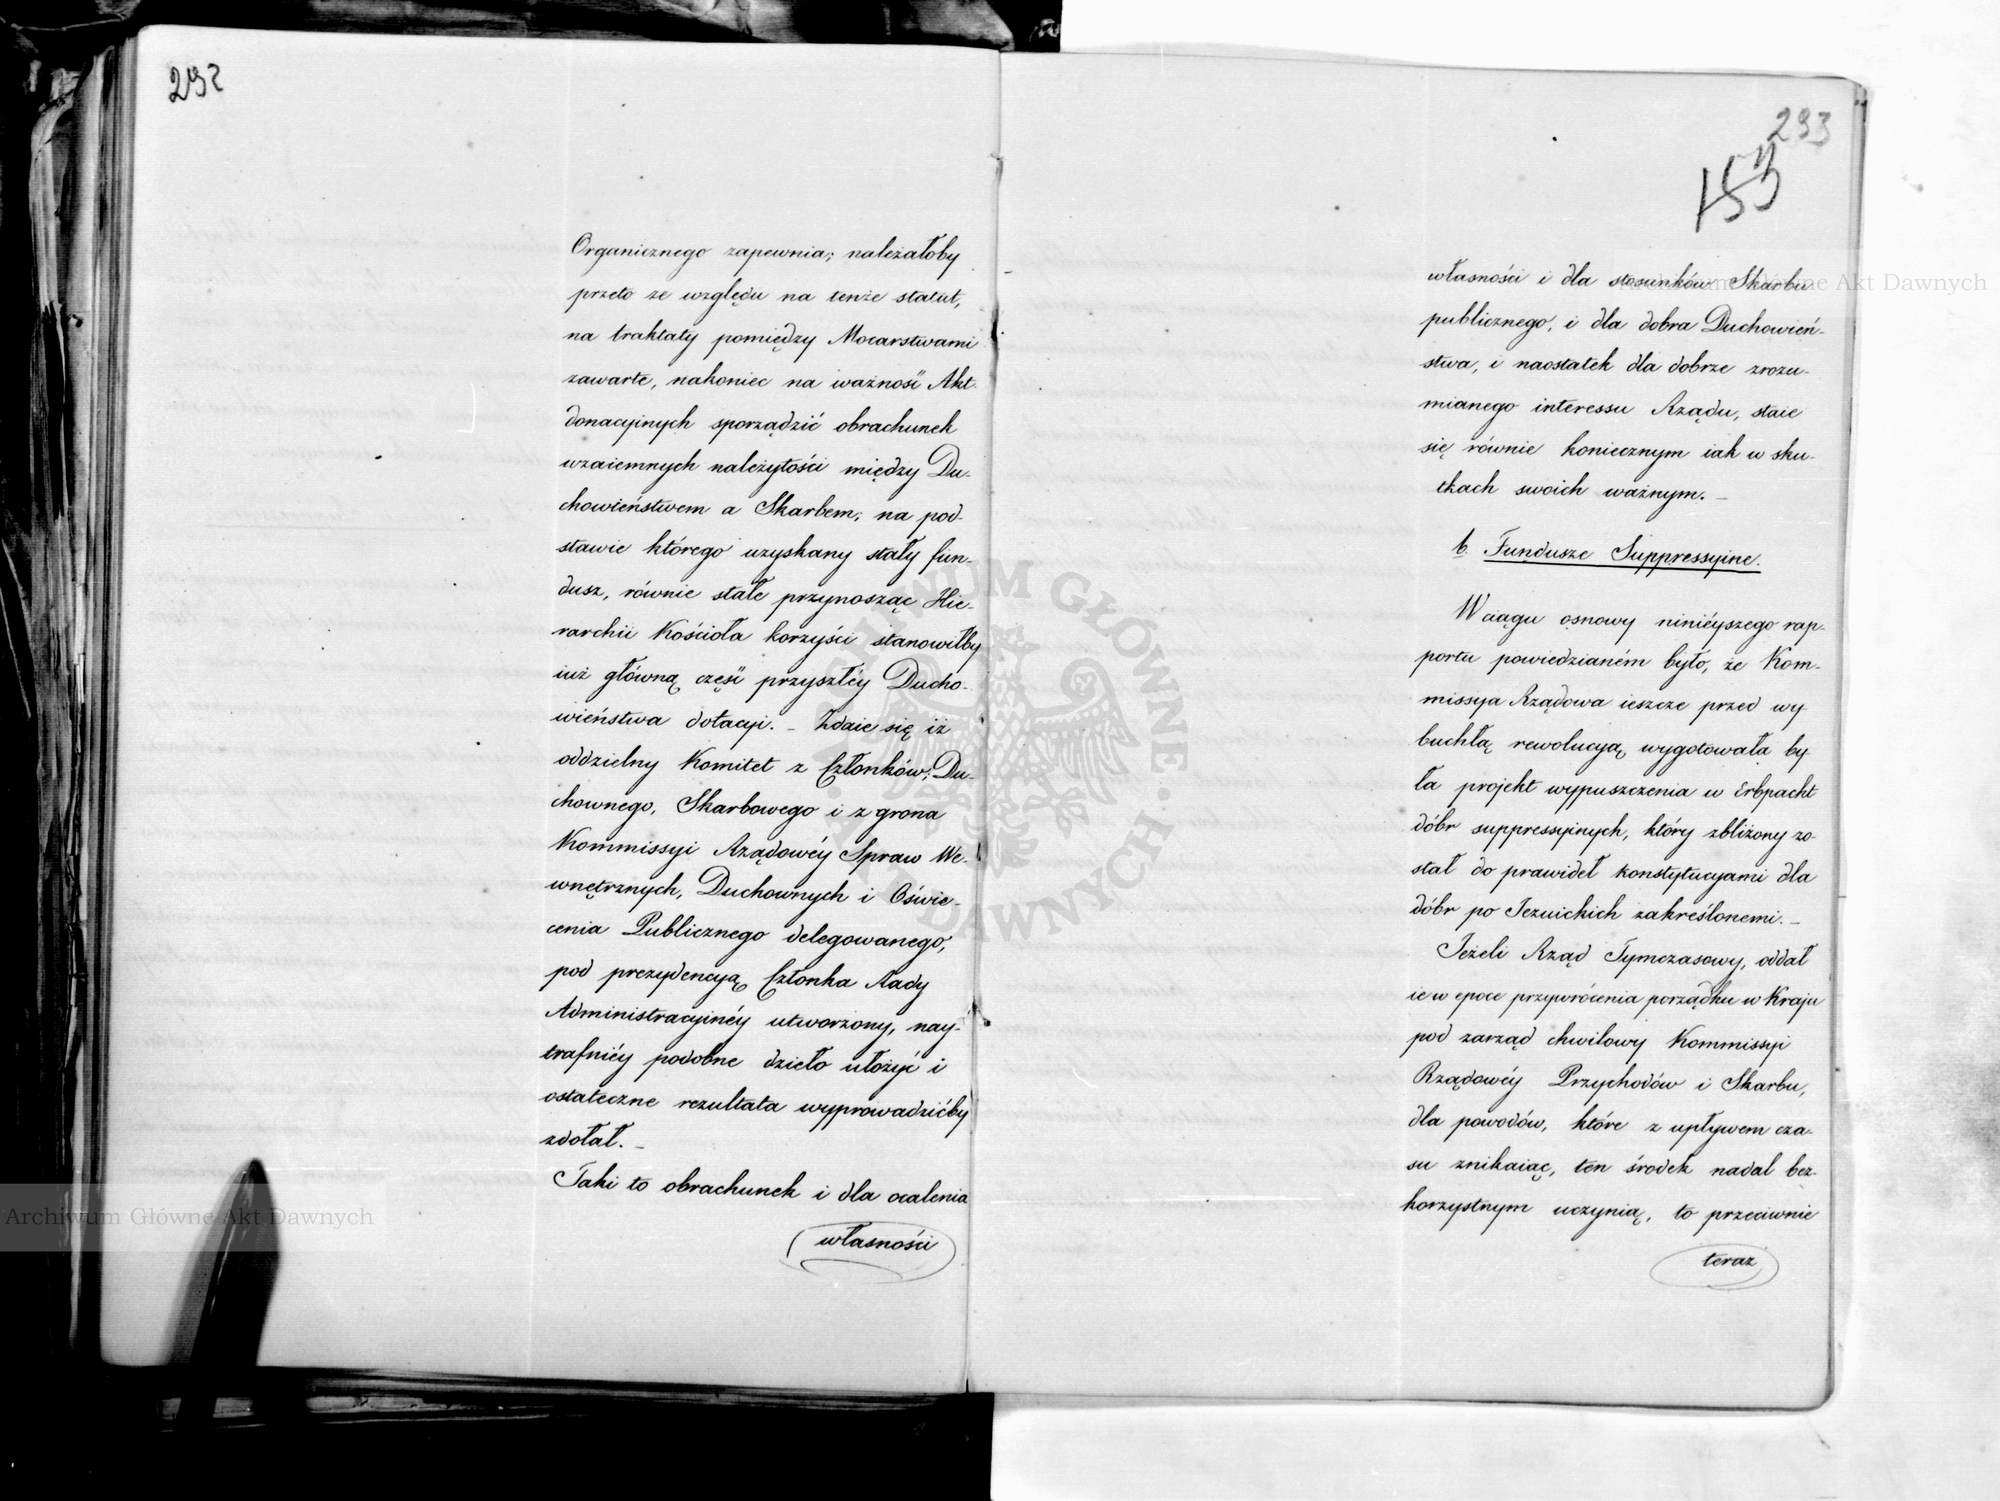 292
Organicznego zapewnia; należałoby
przeto ze względu na tenże statut,
na traktaty pomiędzy Mocarstwami
zawarte, nakoniec na ważność Akt
donacyinych sporządzić obrachunek
wzaiemnych należytości między Du-
chowieństwem a Skarbem; na pod-
stawie którego uzyskany stały fun-
dusz, równie stałe przynosząc Hie-
rarchii Kościoła korzyści stanowiłby
iuż główną część przyszłéy Ducho-
wieństwa dotacyi. – Zdaie się iż
oddzielny Komitet z Członków; Du-
chownego, Skarbowego i z grona
Kommissyi Rządowéy Spraw We-
wnętrznych, Duchownych i Oświe-
cenia Publicznego delegowanego,
pod prezydencyą Członka Rady
Administracyinéy utworzony, nay-
trafniéy podobne dzieło ułożyć i
ostateczne rezultata wyprowadzićby
zdołał. –
Taki to obrachunek i dla ocalenia
własności
293
153
własności i dla stosunków Skarbu
publicznego, i dla dobra Duchowień-
stwa, i naostatek dla dobrze zrozu-
mianego interessu Rządu, staie
się równie koniecznym iak w sku-
tkach swoich ważnym. –
b. Fundusze Suppressyine.
W ciągu osnowy ninieyszego rap-
portu powiedzianém było, że Kom-
missya Rządowa ieszcze przed wy-
buchłą rewolucyą, wygotowała by-
ła projekt wypuszczenia w Erbpacht
dóbr suppressyinych, który zbliżony zo-
stał do prawideł konstytucyami dla
dóbr po Jezuickich zakreślonemi. –
Jeżeli Rząd Tymczasowy, oddał
ie w epoce przywrócenia porządku w Kraju
pod zarząd chwilowy Kommissyi
Rządowéy Przychodów i Skarbu,
dla powodów, które z upływem cza-
su znikaiąc, ten środek nadal bez-
korzystnym uczynią, to przeciwnie
teraz
Archiwum Główne Akt Dawnych
Archiwum Główne Akt Dawnych
ARCHIWUM GŁÓWNE AKT DAWNYCH